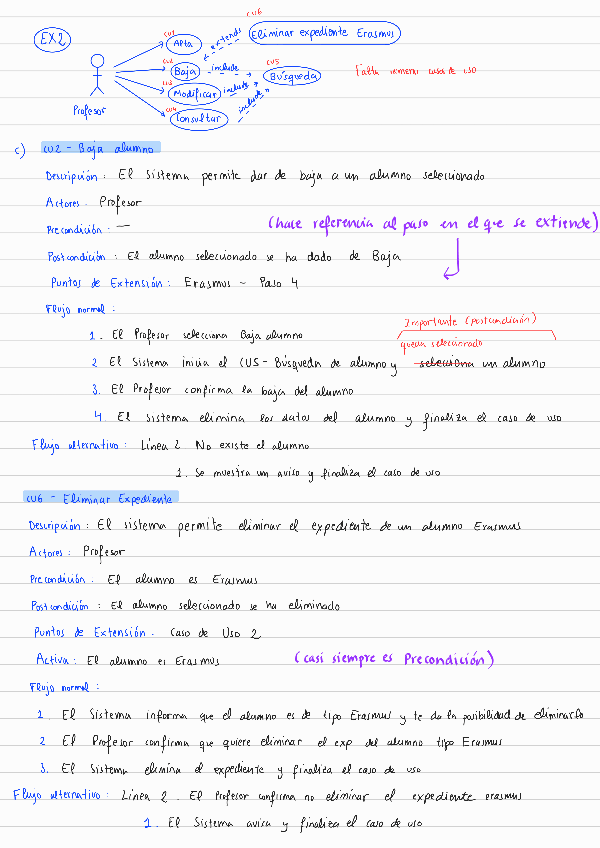 EX2
CU6
Eliminar expediente Erasmus
CU1
Alta
extends
CU2
Baja
include
CU5
Búsqueda
Falta numerar casos de uso
CU3
Modificar
include
CU4
Consultar
include
Profesor
c) CU2 - Baja alumno
Descripción: El Sistema permite dar de baja a un alumno seleccionado
Actores. Profesor
Precondición. —
(hace referencia al paso en el que se extiende)
Postcondición: El alumno seleccionado se ha dado de Baja
Puntos de Extensión: Erasmus - Paso 4
Flujo normal:
Importante (postcondición)
1. El Profesor selecciona Baja alumno
queda seleccionado
2 El Sistema inicia el CU5 - Búsqueda de alumno y selecciona un alumno
3. El Profesor confirma la baja del alumno
4. El sistema elimina los datos del alumno y finaliza el caso de uso
Flujo alternativo: Línea 2 No existe el alumno
1. Se muestra un aviso y finaliza el caso de uso
CU6 - Eliminar Expediente
Descripción: El sistema permite eliminar el expediente de un alumno Erasmus
Actores: Profesor
Precondición. El alumno es Erasmus
Postcondición: El alumno seleccionado se ha eliminado
Puntos de Extensión. Caso de Uso 2
Activa: El alumno es Erasmus (casi siempre es Precondición)
Flujo normal:
1. El Sistema informa que el alumno es de tipo Erasmus y te da la posibilidad de eliminarlo
2 El Profesor confirma que quiere eliminar el exp del alumno tipo Erasmus
3. El Sistema elimina el expediente y finaliza el caso de uso
Flujo alternativo: Línea 2. El Profesor confirma no eliminar el expediente erasmus
1. El Sistema avisa y finaliza el caso de uso